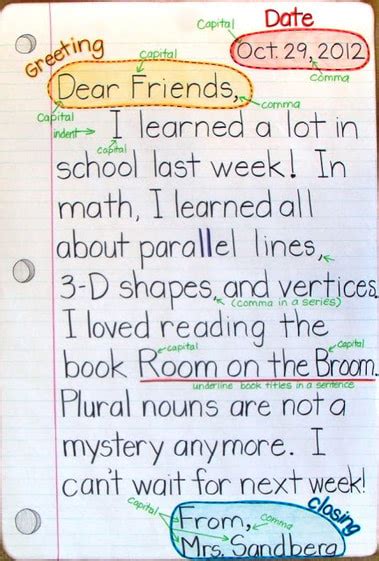 Capital Date
Greeting capital Oct. 29, 2012
Dear Friends, comma
comma
Capital
indent I learned a lot in
capital
school last week! In
math, I learned all
about parallel lines,
3-D shapes, and vertices.
(comma in a series)
I loved reading the
capital capital
book Room on the Broom.
underline book titles in a sentence
Plural nouns are not a
mystery anymore. I
can't wait for next week!
capital From, comma closing
Mrs. Sandberg